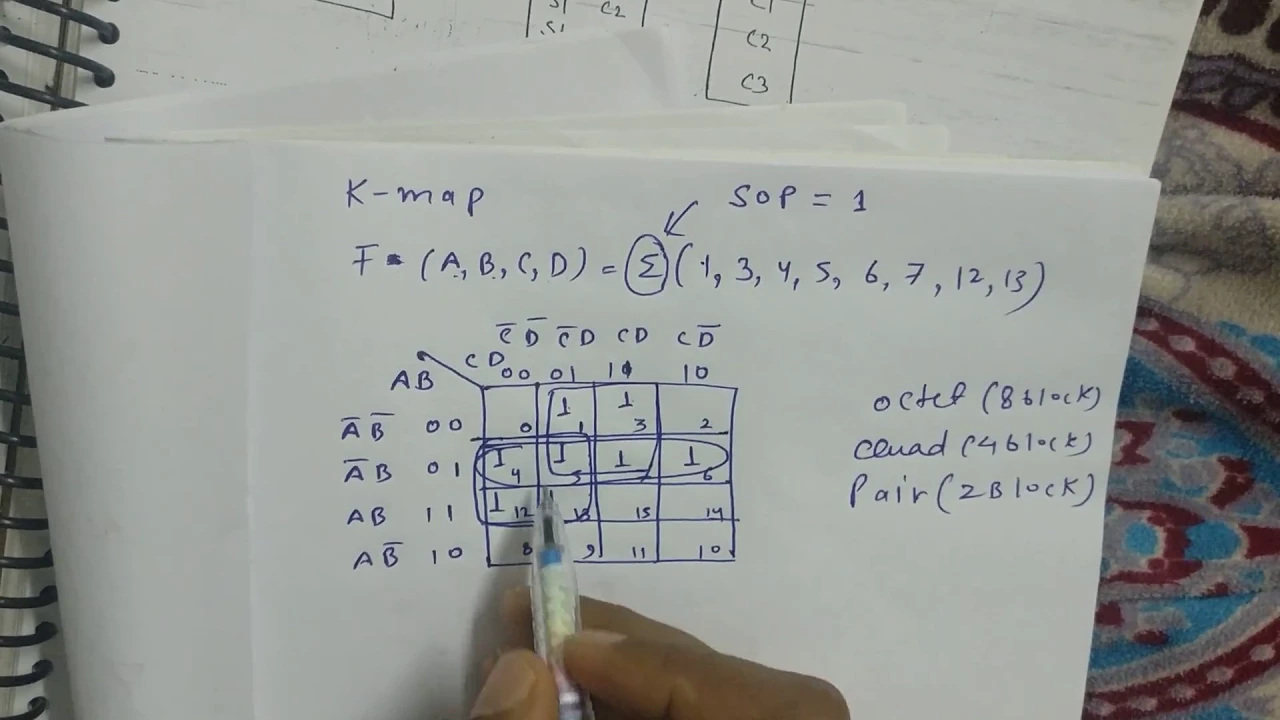 S1 C2 C1
.S1 C2
C3
K-map SOP = 1
F = (A, B, C, D) = Σ (1, 3, 4, 5, 6, 7, 12, 13)
C̅ D̅ C̅ D CD C D̅
CD 00 01 11 10
AB
A̅ B̅ 00 0 1 1 1 3 2
A̅ B 01 1 4 1 5 1 1 6
AB 11 1 12 13 15 14
A B̅ 10 8 9 11 10
octet (8 block)
quad (4 block)
Pair (2 Block)